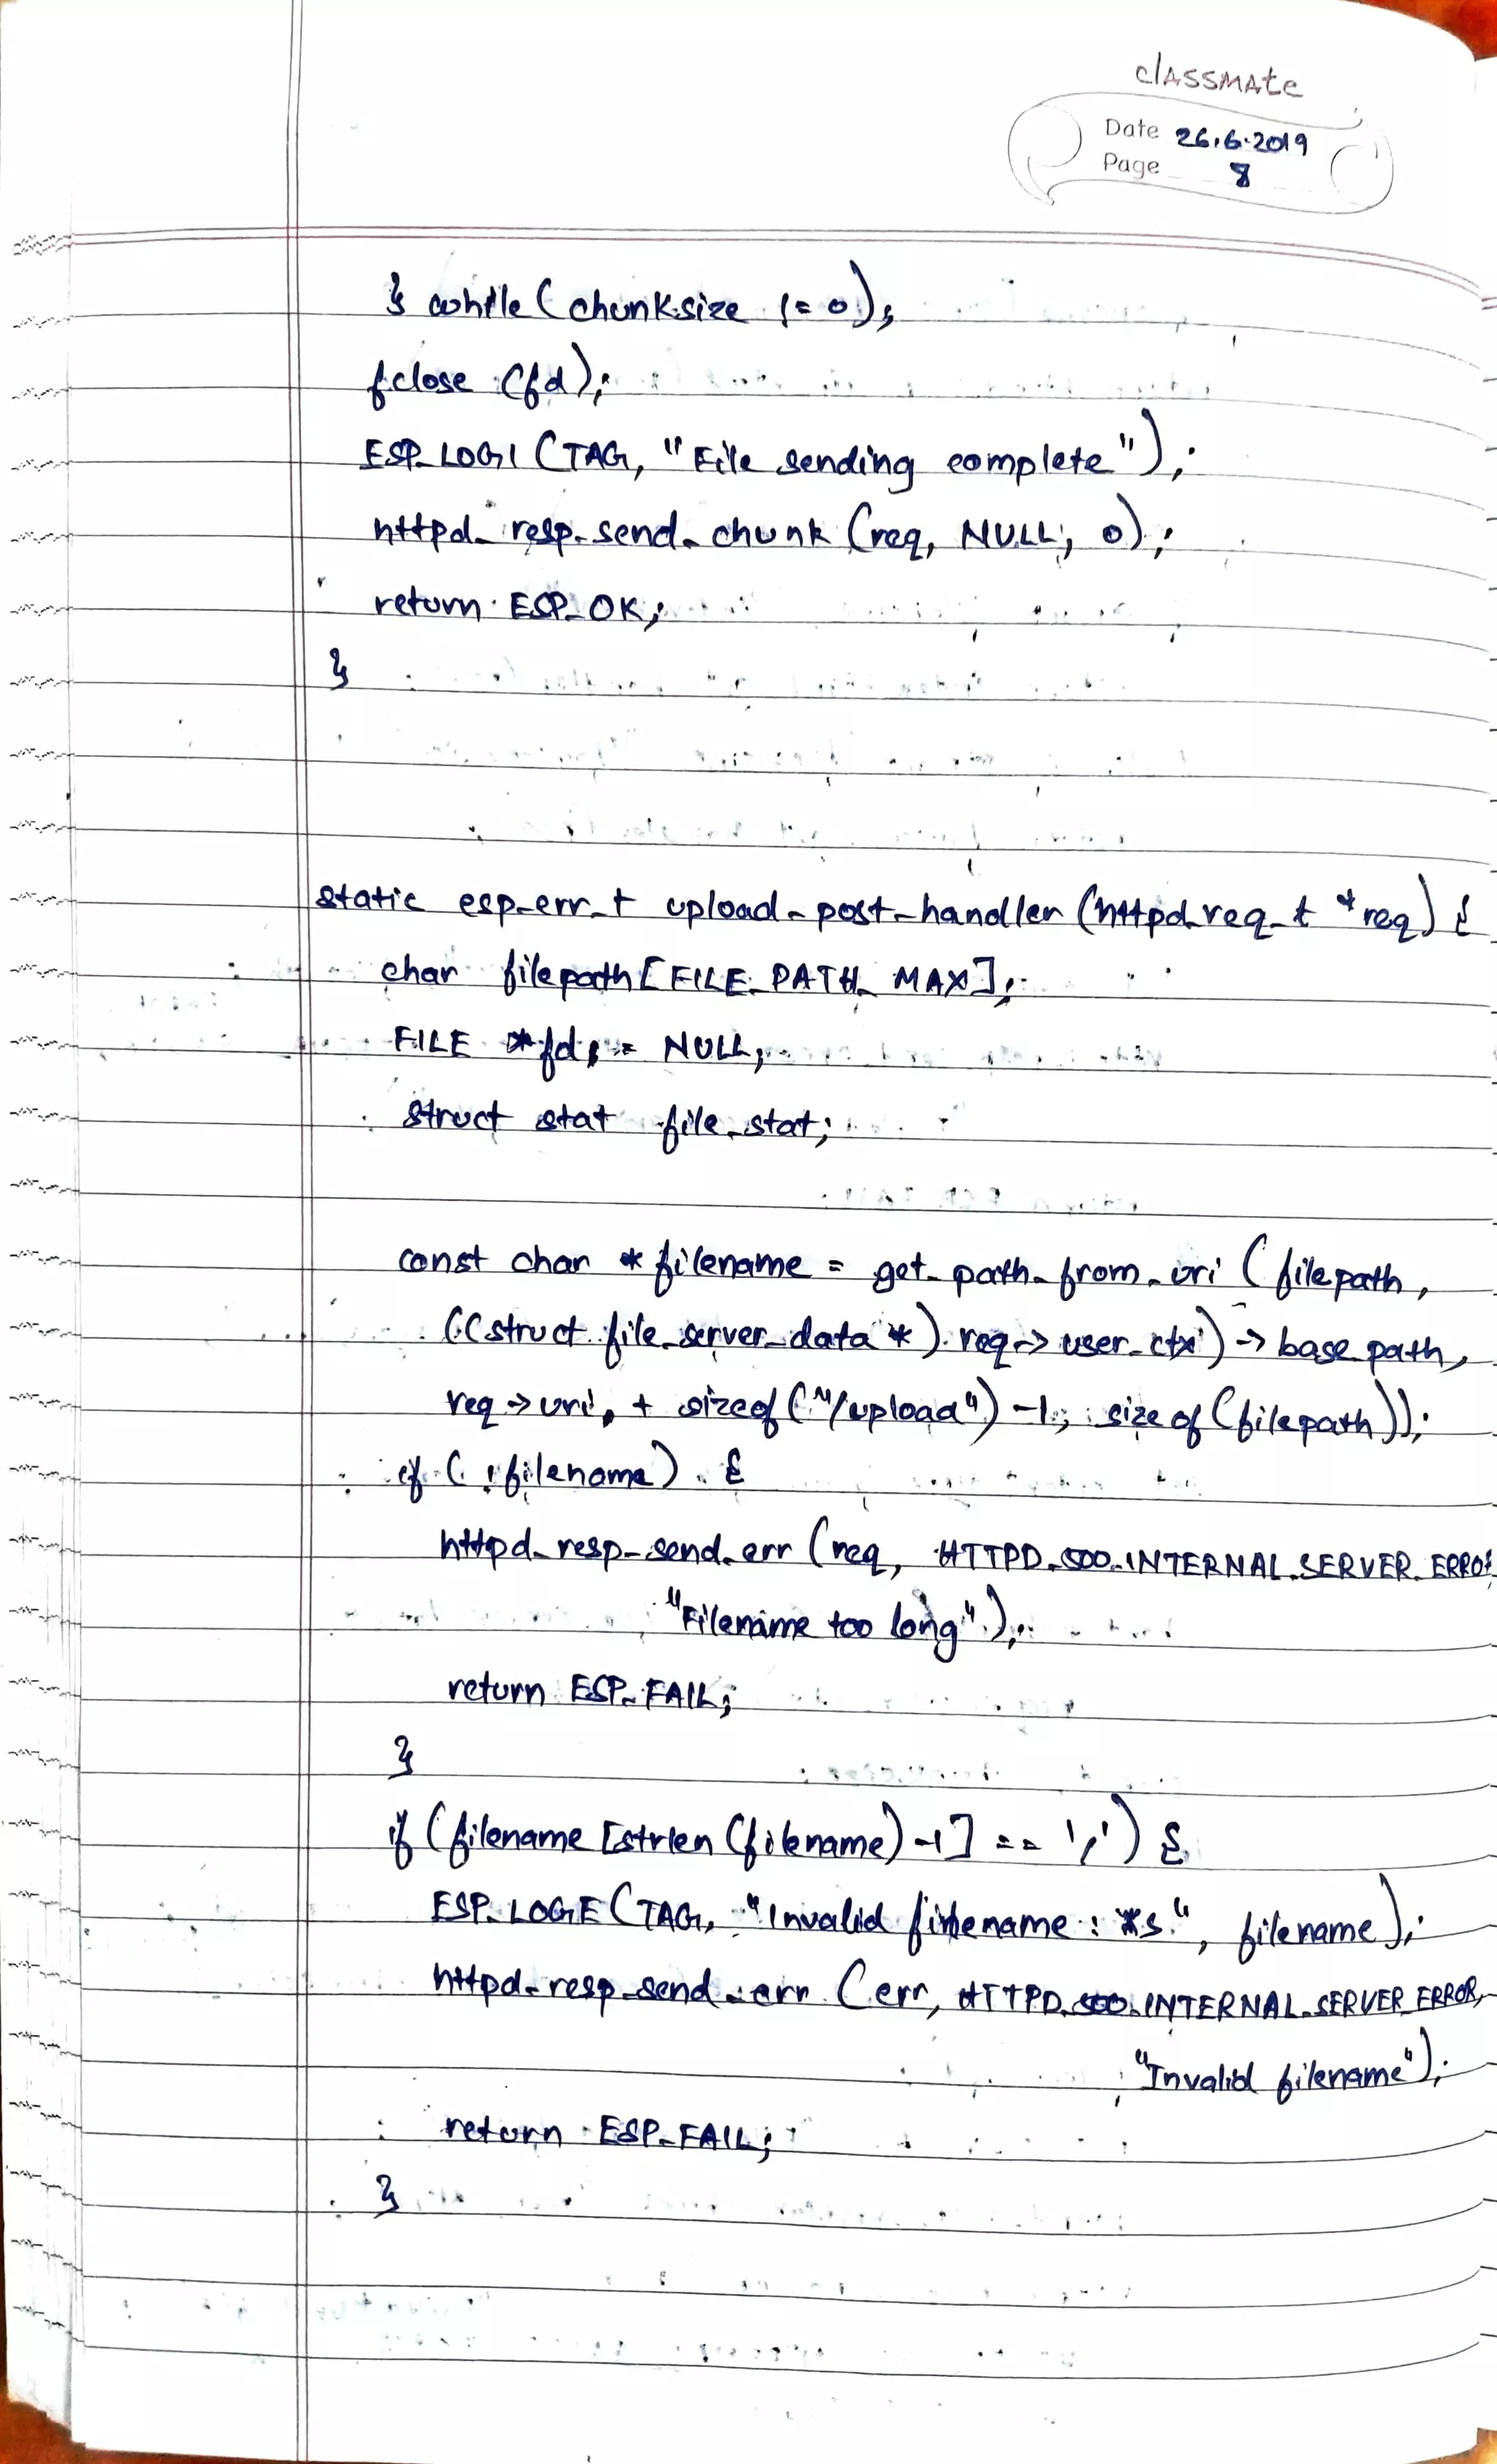 classmate
Date 26.6.2019
Page 8
} while (chunksize != 0);
fclose (fd);
ESP_LOGI (TAG, "File sending complete");
httpd_resp_send_chunk (req, NULL, 0);
return ESP_OK;
}
static esp_err_t upload_post_handler (httpd_req_t *req) {
char filepath [FILE_PATH_MAX];
FILE *fd = NULL;
struct stat file_stat;
const char *filename = get_path_from_uri (filepath,
((struct file_server_data *) req->user_ctx) -> base_path,
req->uri + sizeof ("/upload") -1, sizeof (filepath));
if (!filename) {
httpd_resp_send_err (req, HTTPD_500_INTERNAL_SERVER_ERROR,
"Filename too long");
return ESP_FAIL;
}
if (filename [strlen (filename) -1] == '/') {
ESP_LOGE (TAG, "Invalid filename : %s", filename);
httpd_resp_send_err (err, HTTPD_500_INTERNAL_SERVER_ERROR,
"Invalid filename");
return ESP_FAIL;
}